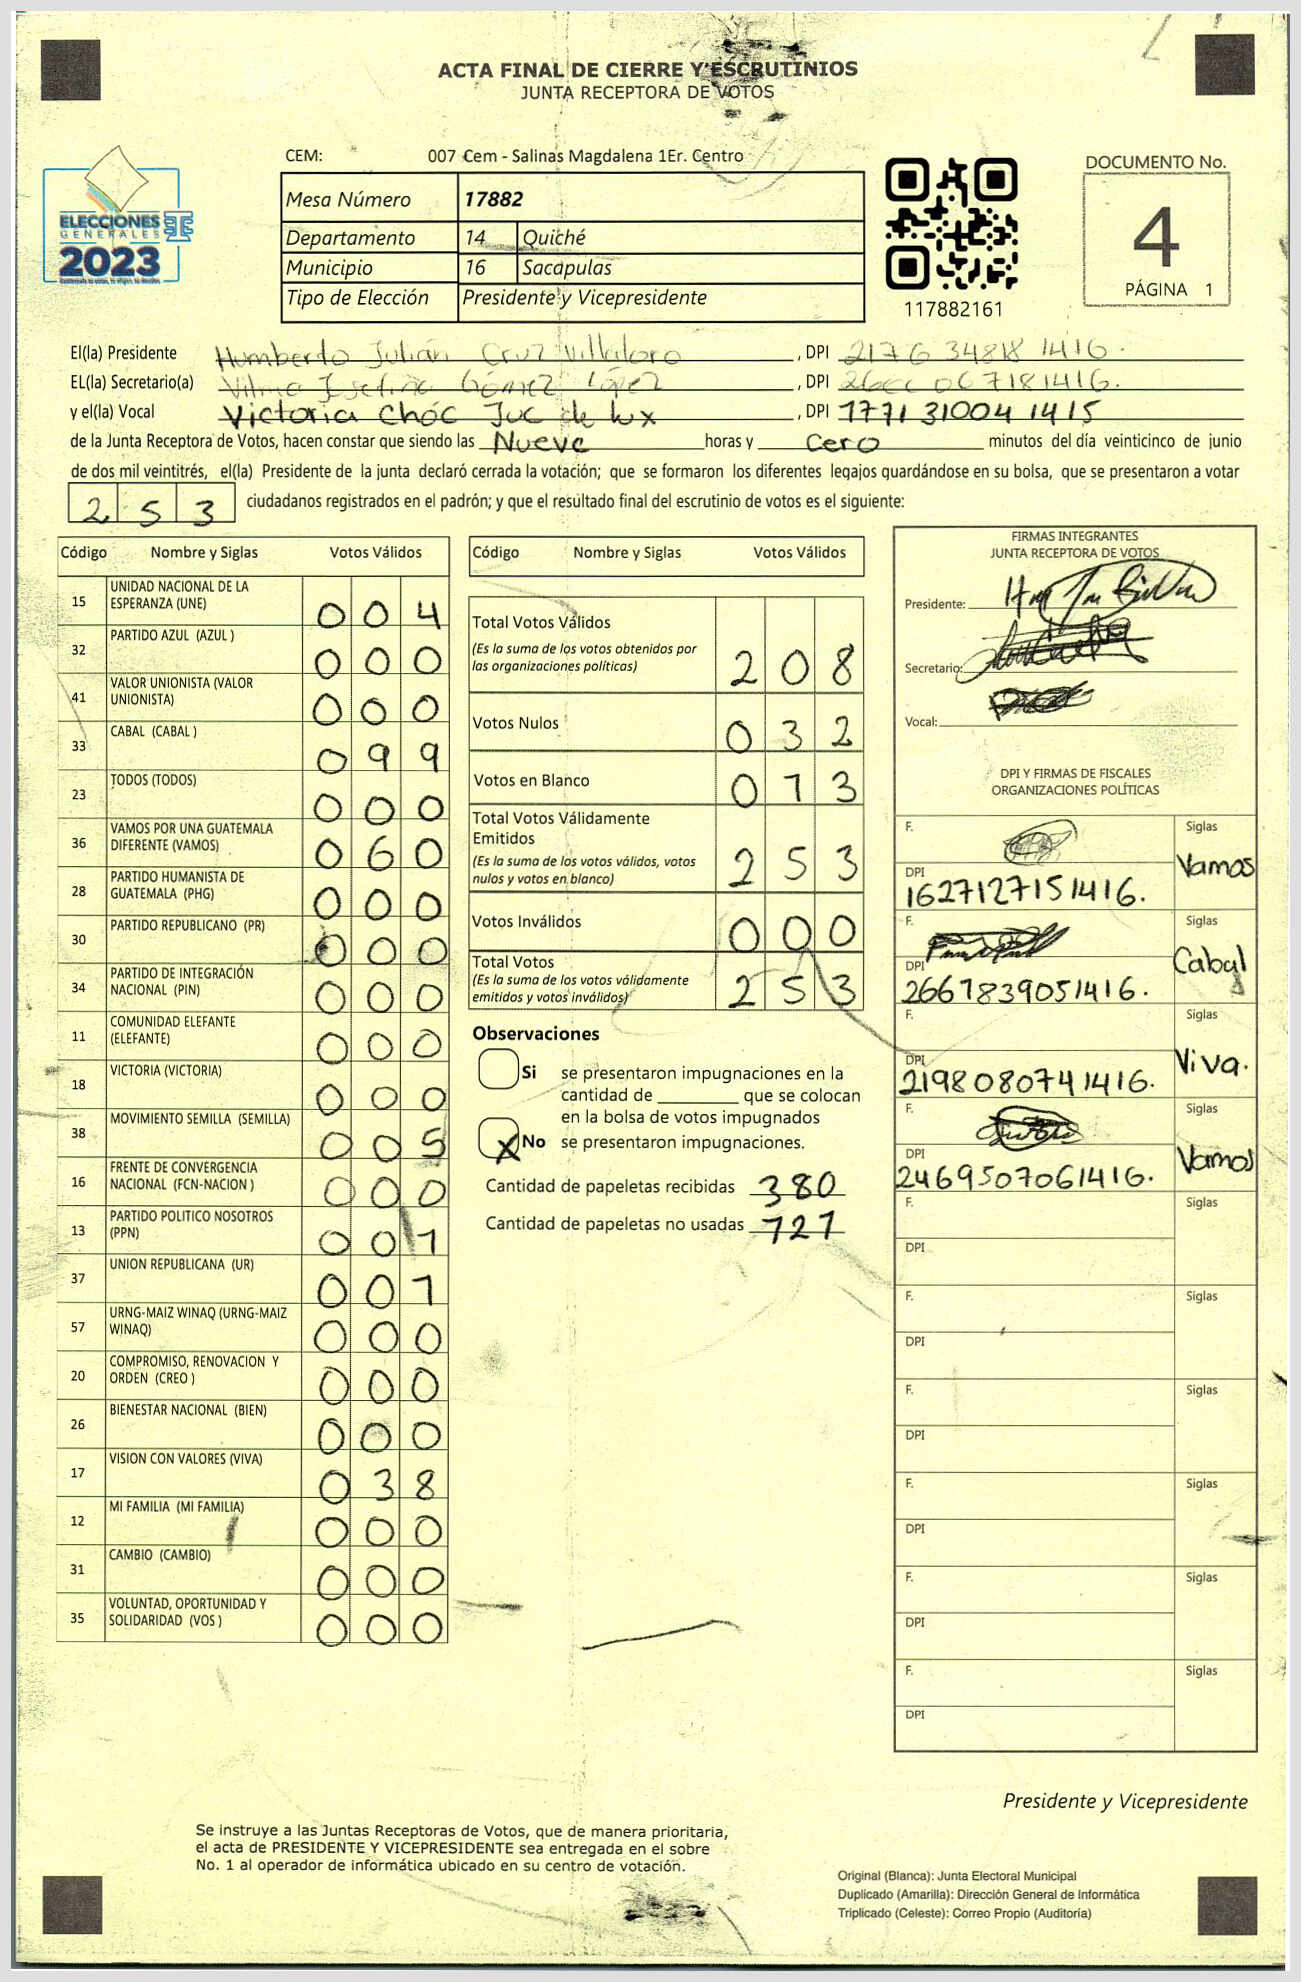 ACTA FINAL DE CIERRE Y ESCRUTINIOS
JUNTA RECEPTORA DE VOTOS
CEM: 007 Cem - Salinas Magdalena 1Er. Centro
ELECCIONES
GENERALES
2023
Mesa Número 17882
Departamento 14 Quiché
Municipio 16 Sacapulas
Tipo de Elección Presidente y Vicepresidente
117882161
DOCUMENTO No.
4
PÁGINA 1
El(la) Presidente Humberto Julián Cruz Villatoro, DPI 2176 34818 1416.
EL(la) Secretario(a) Vilma Josefina Gómez López, DPI
y el(la) Vocal Victoria Chóc Juc de lux, DPI 1771 31004 1415
de la Junta Receptora de Votos, hacen constar que siendo las Nueve horas y cero minutos del día veinticinco de junio
de dos mil veintitrés, el(la) Presidente de la junta declaró cerrada la votación; que se formaron los diferentes legajos guardándose en su bolsa, que se presentaron a votar
253 ciudadanos registrados en el padrón; y que el resultado final del escrutinio de votos es el siguiente:
Código Nombre y Siglas Votos Válidos
15 UNIDAD NACIONAL DE LA ESPERANZA (UNE) 004
32 PARTIDO AZUL (AZUL ) 000
41 VALOR UNIONISTA (VALOR UNIONISTA) 000
33 CABAL (CABAL ) 099
23 TODOS (TODOS) 000
36 VAMOS POR UNA GUATEMALA DIFERENTE (VAMOS) 060
28 PARTIDO HUMANISTA DE GUATEMALA (PHG) 000
30 PARTIDO REPUBLICANO (PR) 000
34 PARTIDO DE INTEGRACIÓN NACIONAL (PIN) 000
11 COMUNIDAD ELEFANTE (ELEFANTE) 000
18 VICTORIA (VICTORIA) 000
38 MOVIMIENTO SEMILLA (SEMILLA) 005
16 FRENTE DE CONVERGENCIA NACIONAL (FCN-NACION ) 000
13 PARTIDO POLITICO NOSOTROS (PPN) 001
37 UNION REPUBLICANA (UR) 001
57 URNG-MAIZ WINAQ (URNG-MAIZ WINAQ) 000
20 COMPROMISO, RENOVACION Y ORDEN (CREO ) 000
26 BIENESTAR NACIONAL (BIEN) 000
17 VISION CON VALORES (VIVA) 038
12 MI FAMILIA (MI FAMILIA) 000
31 CAMBIO (CAMBIO) 000
35 VOLUNTAD, OPORTUNIDAD Y SOLIDARIDAD (VOS ) 000
Código Nombre y Siglas Votos Válidos
Total Votos Válidos 208
(Es la suma de los votos obtenidos por
las organizaciones políticas)
Votos Nulos 032
Votos en Blanco 013
Total Votos Válidamente
Emitidos 253
(Es la suma de los votos válidos, votos
nulos y votos en blanco)
Votos Inválidos 000
Total Votos 253
(Es la suma de los votos válidamente
emitidos y votos inválidos)
Observaciones
Si se presentaron impugnaciones en la
cantidad de ________ que se colocan
en la bolsa de votos impugnados
X No se presentaron impugnaciones.
Cantidad de papeletas recibidas 380
Cantidad de papeletas no usadas 127
FIRMAS INTEGRANTES
JUNTA RECEPTORA DE VOTOS
Presidente:
Secretario:
Vocal:
DPI Y FIRMAS DE FISCALES
ORGANIZACIONES POLÍTICAS
F. Siglas Vamos
DPI 1627127151416.
F. Siglas Cabal
DPI 2667839051416.
F. Siglas Viva.
DPI 2198080741416.
F. Siglas Vamos
DPI 2469507061416.
F. Siglas
DPI
F. Siglas
DPI
F. Siglas
DPI
F. Siglas
DPI
F. Siglas
DPI
F. Siglas
DPI
Presidente y Vicepresidente
Se instruye a las Juntas Receptoras de Votos, que de manera prioritaria,
el acta de PRESIDENTE Y VICEPRESIDENTE sea entregada en el sobre
No. 1 al operador de informática ubicado en su centro de votación.
Original (Blanca): Junta Electoral Municipal
Duplicado (Amarilla): Dirección General de Informática
Triplicado (Celeste): Correo Propio (Auditoría)